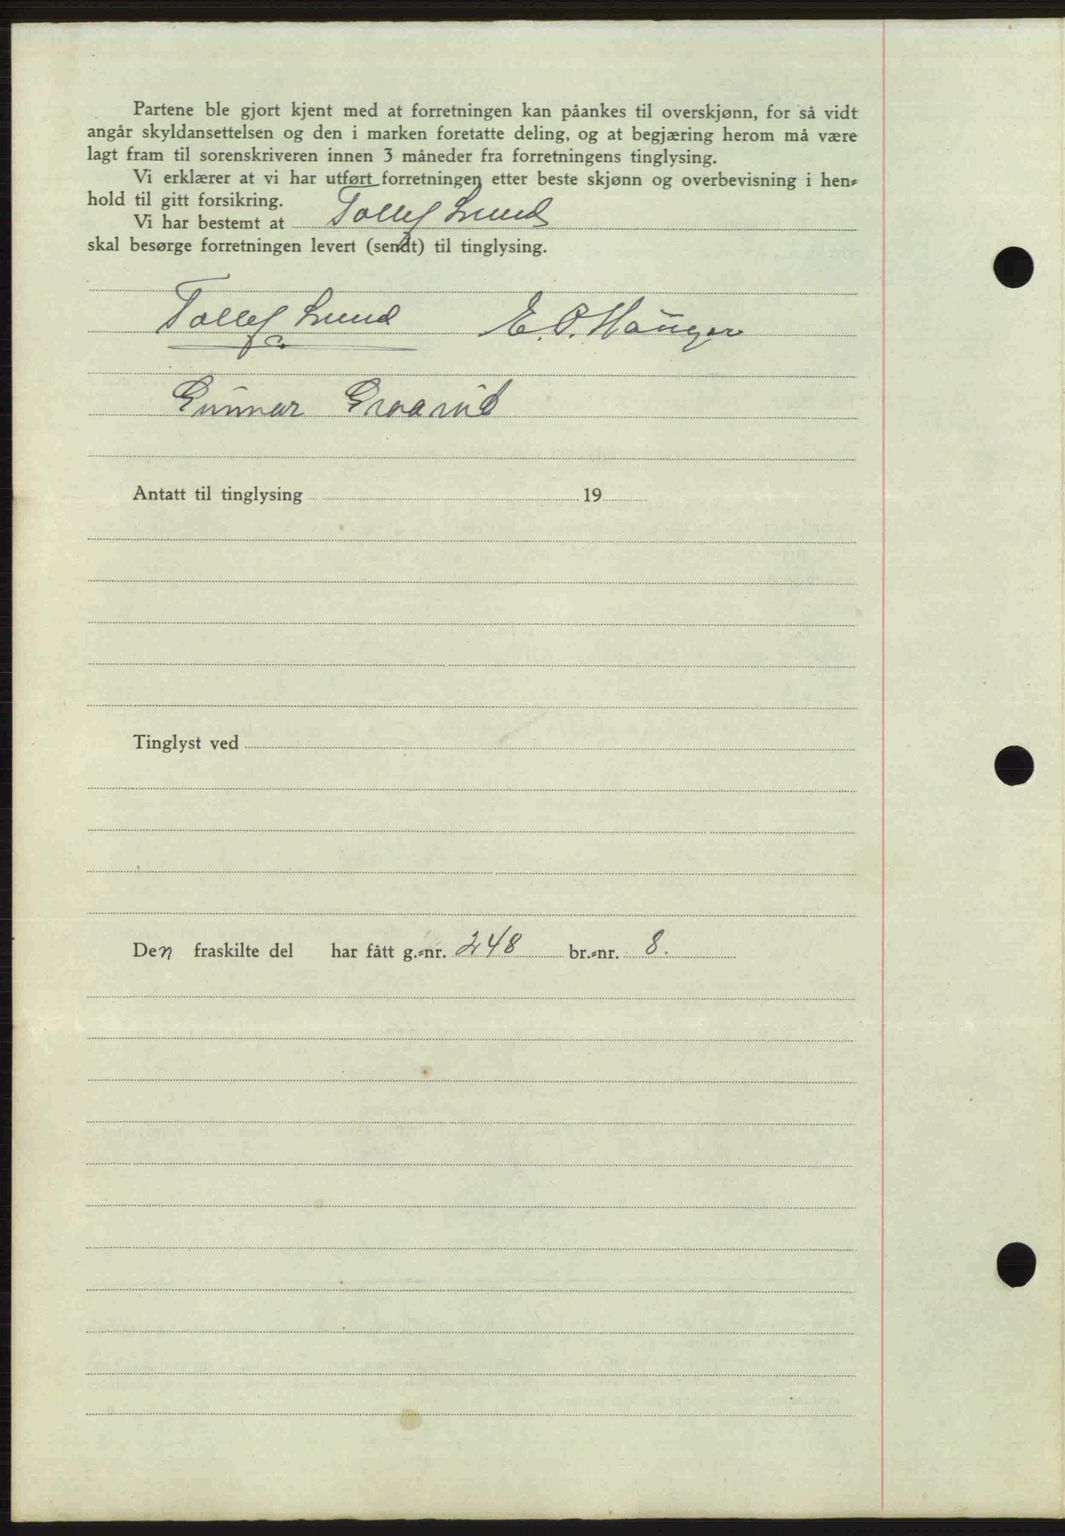 Partene ble gjort kjent med at forretningen kan påankes til overskjønn, for så vidt
angår skyldansettelsen og den i marken foretatte deling, og at begjæring herom må være
lagt fram til sorenskriveren innen 3 måneder fra forretningens tinglysing.
Vi erklærer at vi har utført forretningen etter beste skjønn og overbevisning i hen-
hold til gitt forsikring.
Vi har bestemt at Tollef Lund
skal besørge forretningen levert (sendt) til tinglysing.
Tollef Lund E. O. Hauger
Gunnar
Antatt til tinglysing 19
Tinglyst ved
Den fraskilte del har fått g.-nr. 248 br.-nr. 8.